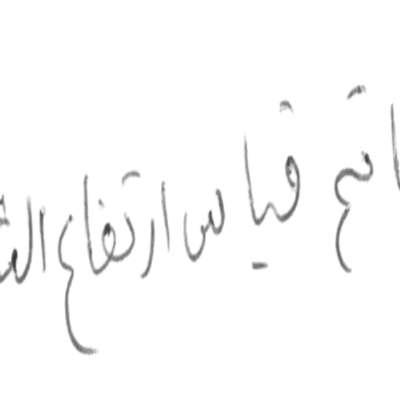 تم قياس ارتفاع